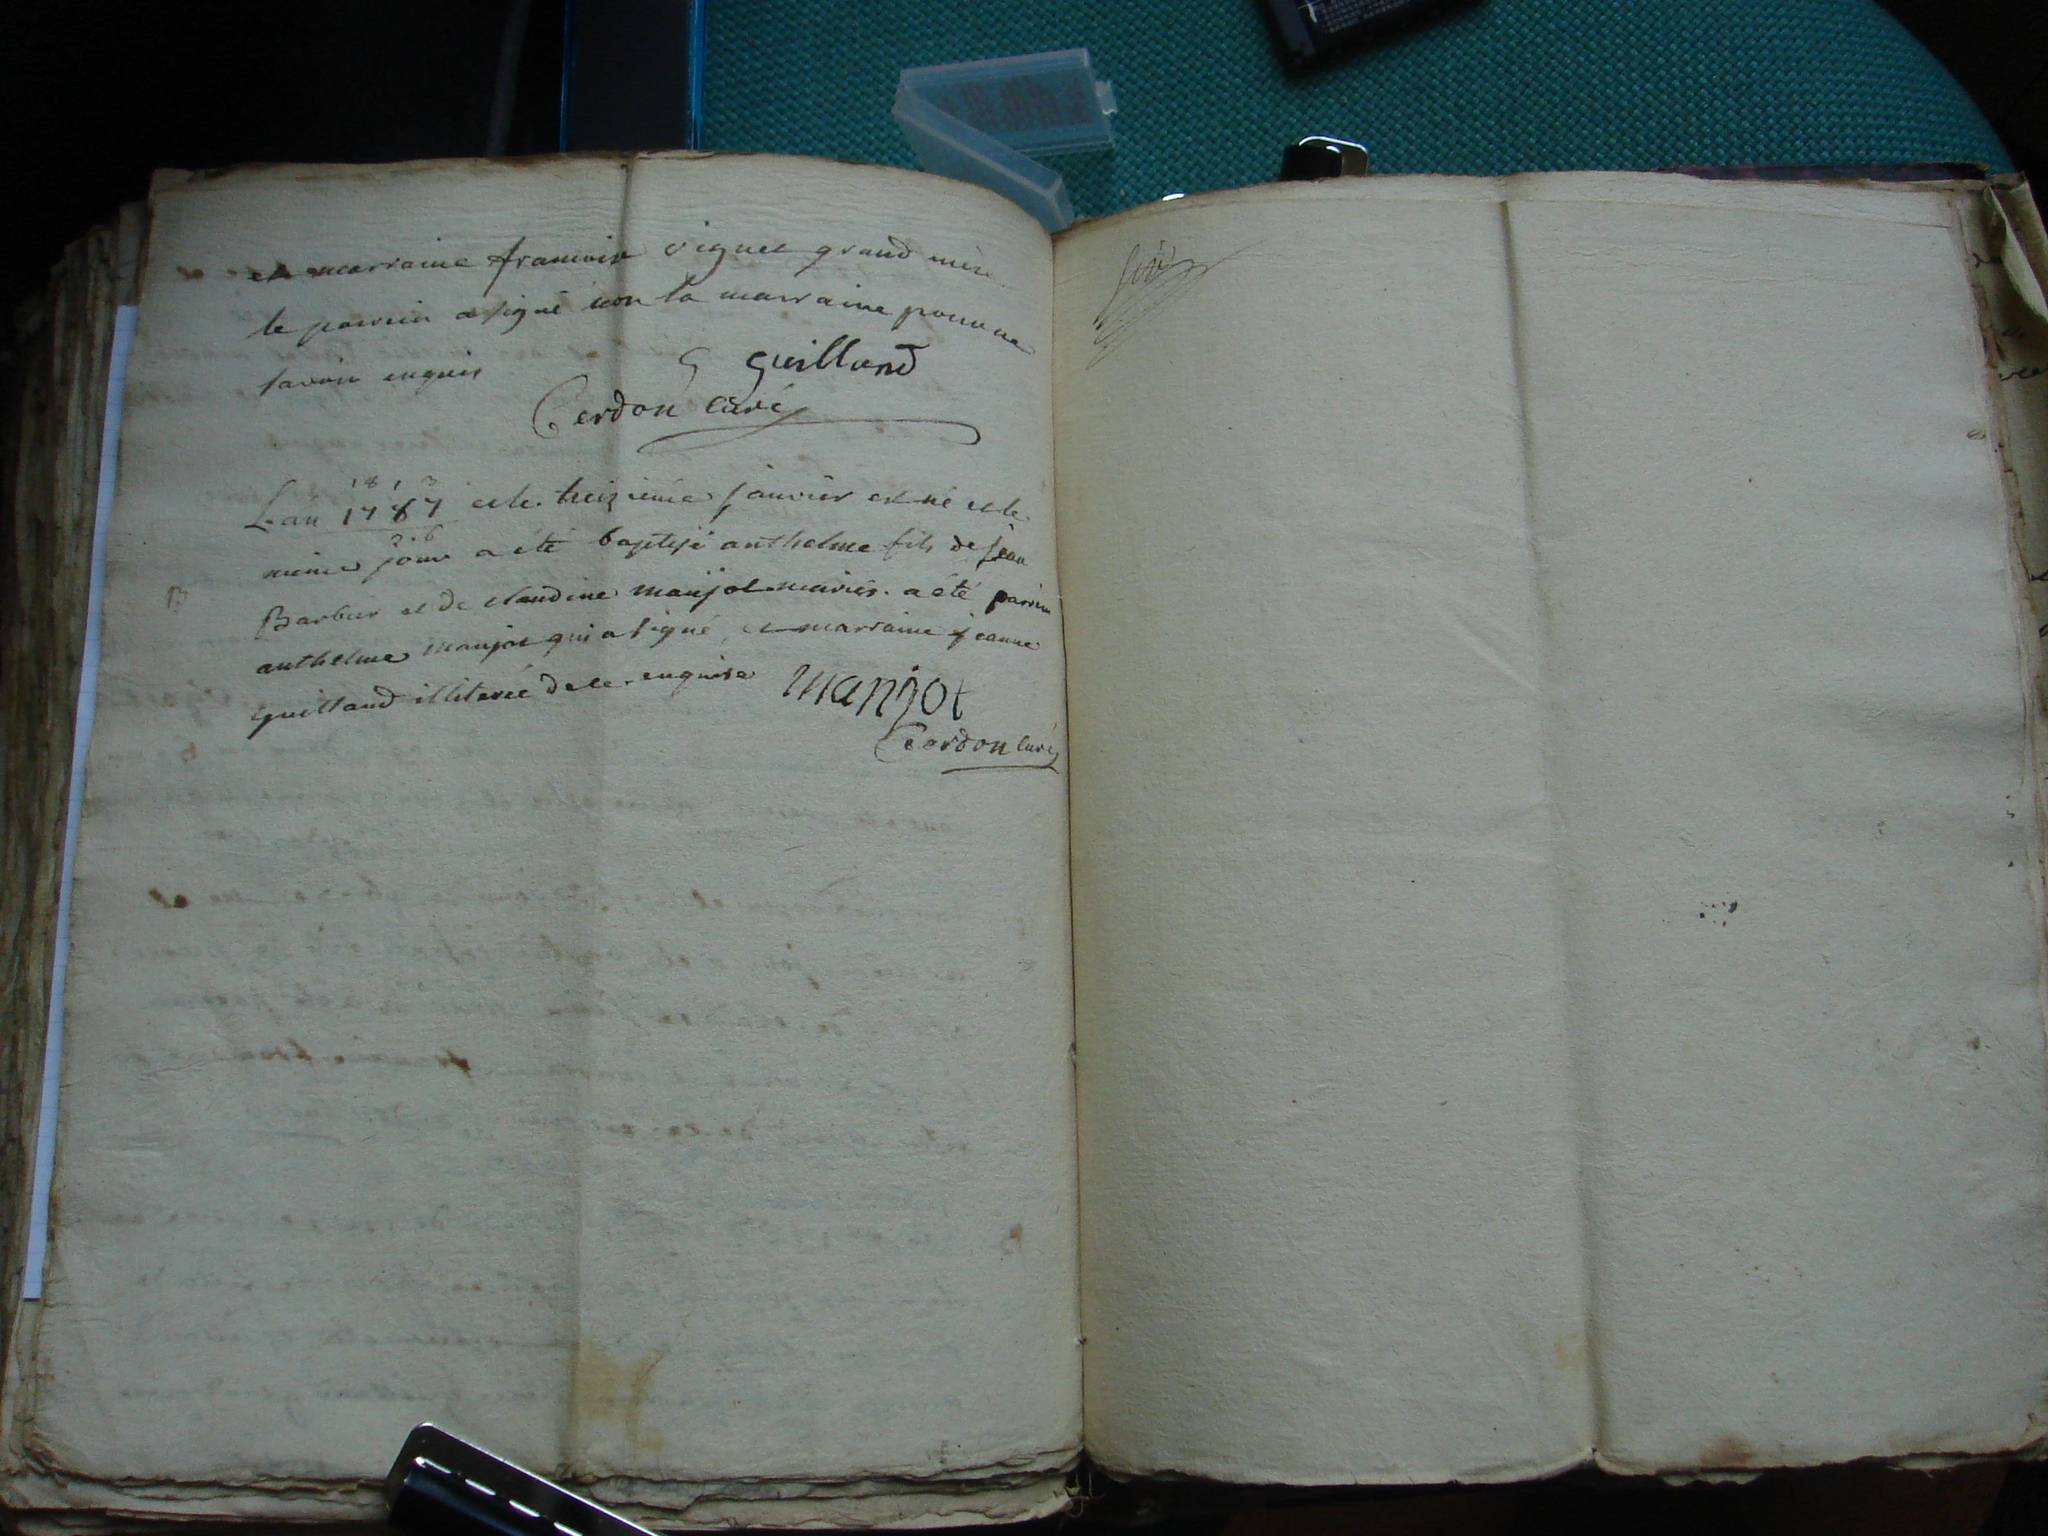 et marraine francoise viguet grand mère
le parrein a signé non la marraine pour ne
savoir enquis
G Guilland
Cerdon Curé
1813
L'an 1787 et le treizième janvier est né et le
26
même jour a été baptisé anthelme fils de jean
B
Barbier et de claudine manjot mariés. a été parrein
anthelme manjot qui a signé, et marraine jeanne
guilland illiterée de ce enquise manjot
Cerdon Curé